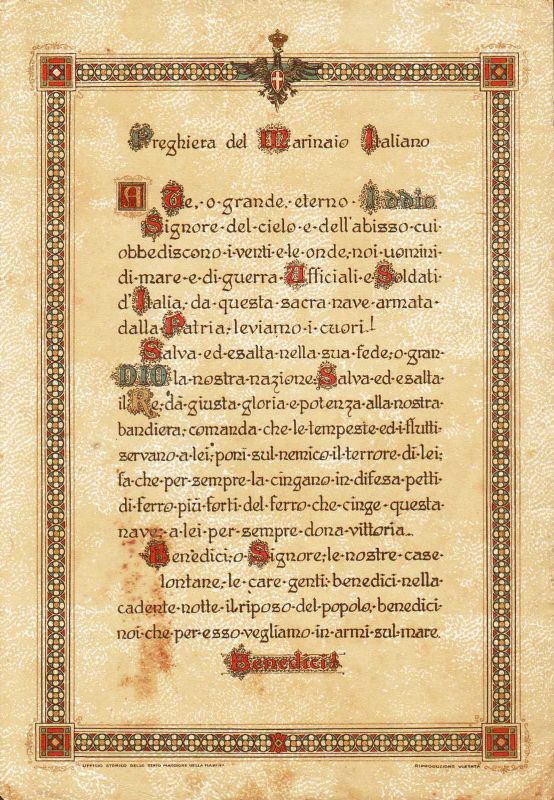 Preghiera del Marinaio Italiano
A Te, o grande, eterno Iddio
Signore·del·cielo·e·dell'abisso·cui
obbediscono·i·venti·e·le·onde,·noi·uomini
di·mare·e·di·guerra·Ufficiali·e·Soldati
d'Italia,·da·questa·sacra·nave·armata·
dalla·Patria,·leviamo·i·cuori!
Salva·ed·esalta·nella·sua·fede,·o·gran-
DIO·la·nostra·nazione,·Salva·ed·esalta·
il·Re,·dà·giusta·gloria·e·potenza·alla·nostra·
bandiera,·comanda·che·le·tempeste·ed·i·flutti·
servano·a·lei,·poni·sul·nemico·il·terrore·di·lei;
fa·che·per·sempre·la·cingano·in·difesa·petti·
di·ferro·più·forti·del·ferro·che·cinge·questa·
nave,·a·lei·per·sempre·dona·vittoria..
Benedici,·o·Signore,·le·nostre·case·
lontane,·le·care·genti·benedici·nella·
cadente·notte·il·riposo·del·popolo,·benedici·
noi·che·per·esso·vegliamo·in·armi·sul·mare.
Benedici!
UFFICIO STORICO DELLO STATO MAGGIORE DELLA MARINA
RIPRODUZIONE VIETATA